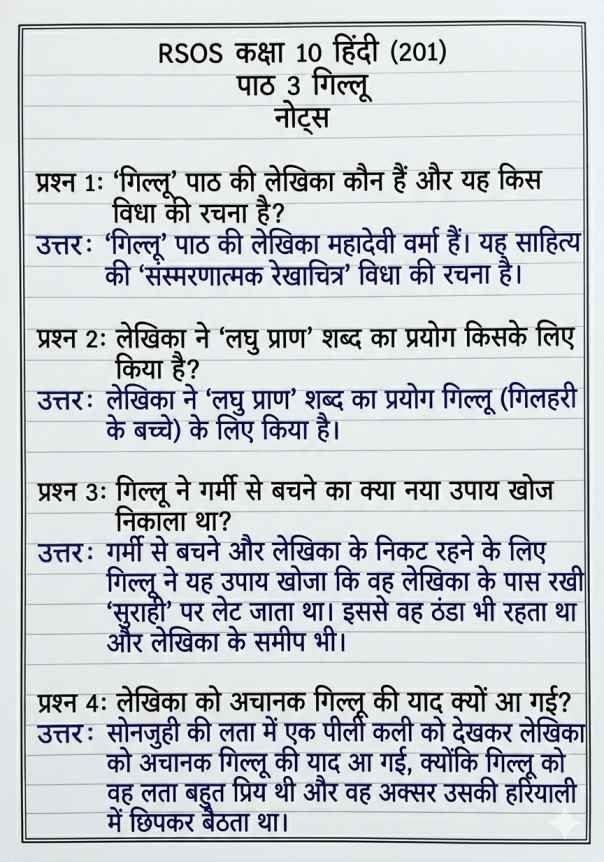 RSOS कक्षा 10 हिंदी (201)
पाठ 3 गिल्लू
नोट्स
प्रश्न 1: ‘गिल्लू’ पाठ की लेखिका कौन हैं और यह किस
विधा की रचना है?
उत्तर: ‘गिल्लू’ पाठ की लेखिका महादेवी वर्मा हैं। यह साहित्य
की ‘संस्मरणात्मक रेखाचित्र’ विधा की रचना है।
प्रश्न 2: लेखिका ने ‘लघु प्राण’ शब्द का प्रयोग किसके लिए
किया है?
उत्तर: लेखिका ने ‘लघु प्राण’ शब्द का प्रयोग गिल्लू (गिलहरी
के बच्चे) के लिए किया है।
प्रश्न 3: गिल्लू ने गर्मी से बचने का क्या नया उपाय खोज
निकाला था?
उत्तर: गर्मी से बचने और लेखिका के निकट रहने के लिए
गिल्लू ने यह उपाय खोजा कि वह लेखिका के पास रखी
‘सुराही’ पर लेट जाता था। इससे वह ठंडा भी रहता था
और लेखिका के समीप भी।
प्रश्न 4: लेखिका को अचानक गिल्लू की याद क्यों आ गई?
उत्तर: सोनजुही की लता में एक पीली कली को देखकर लेखिका
को अचानक गिल्लू की याद आ गई, क्योंकि गिल्लू को
वह लता बहुत प्रिय थी और वह अक्सर उसकी हरियाली
में छिपकर बैठता था।